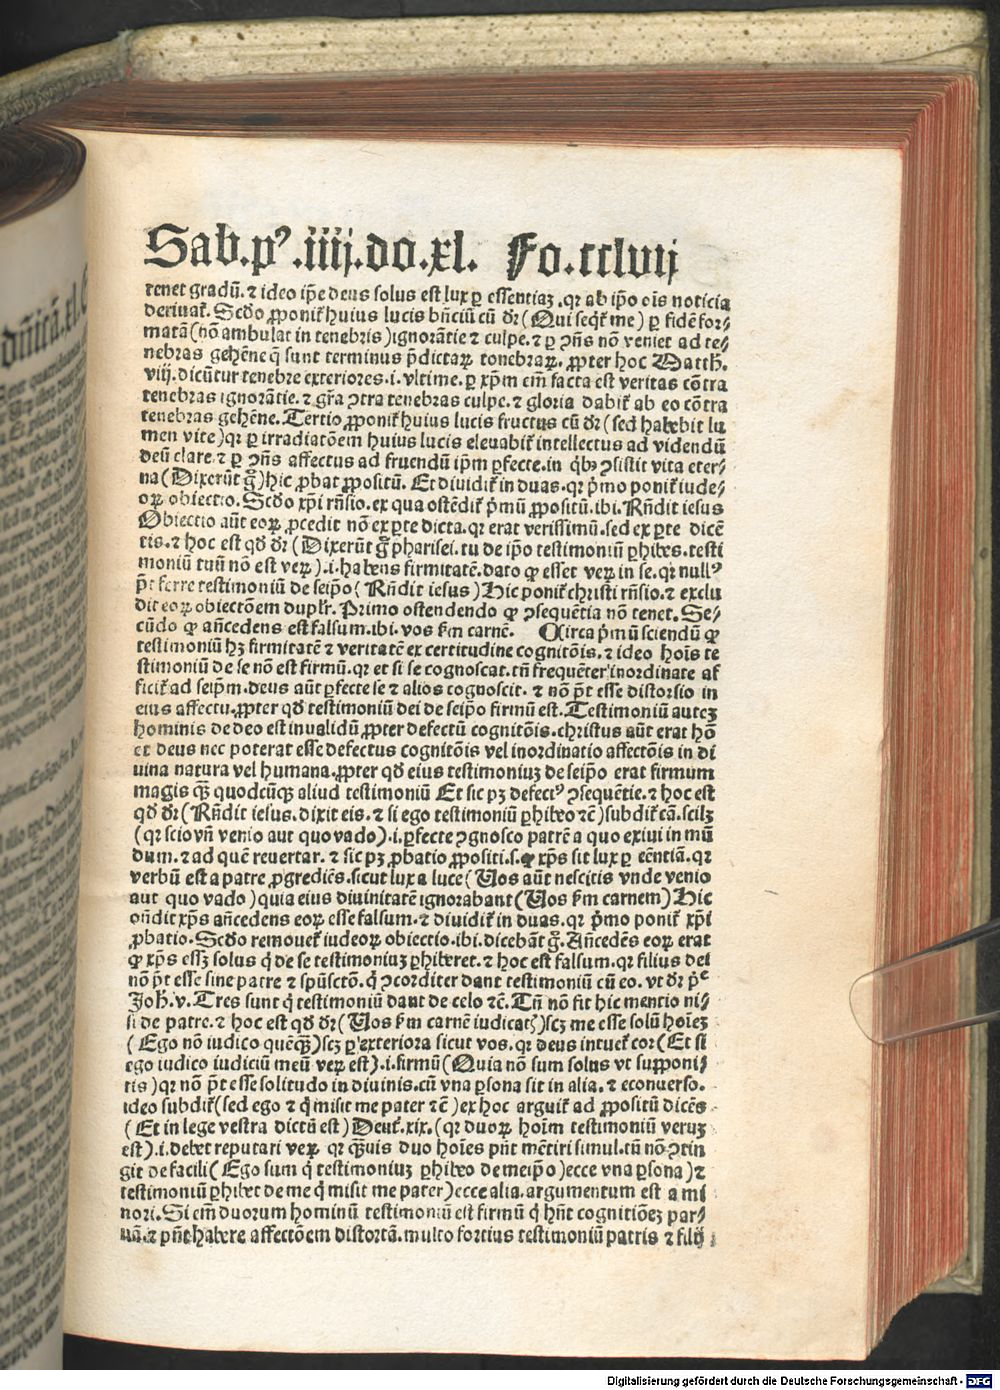 Sab.pꝰ.iiij.do.xl. Fo.cclvij
tenet gradū.⁊ ideo ip̄e deus solus est lux ꝑ essentiaꝫ.qꝛ ab ip̄o oīs noticia
deriuat᷑. Scd̄o ꝓponit᷑ huius lucis bn̄ciū cū dꝛ̄ (Qui seqt᷑ me) ꝑ fidē for⸗
matā (nō ambulat in tenebris) ignorātie ⁊ culpe.⁊ ꝑ ↄn̄s nō veniet ad te⸗
nebras gehēne q̄ sunt terminus p̄dictaꝝ tenebraꝝ. ꝓpter hoc Matth.
viij. dicūtur tenebre exteriores.i.vltime.ꝑ xp̄m em̄ facta est veritas cōtra
tenebras ignorātie.⁊ gr̄a ↄtra tenebras culpe.⁊ gloria dabit᷑ ab eo cōtra
tenebras gehēne. Tertio ꝓponit᷑ huius lucis fructus cū dꝛ̄ (sed habebit lu
men vite) qꝛ ꝑ irradiatōem huius lucis eleuabit᷑ intellectus ad videndū
deū clare.⁊ ꝑ ↄn̄s affectus ad fruendū ip̄m ꝑfecte.in qͥbꝫ ↄsistit vita eter⸗
na (Dixerūt g̊) hic ꝓbat ꝓpositū. Et diuidit᷑ in duas.qꝛ pͥmo ponit᷑ iude⸗
oꝝ obiectio. Scd̄o xp̄i rn̄sio.ex qua ostēdit᷑ pͥmū ꝓpositū.ibi. Rn̄dit iesus
Obiectio aūt eoꝝ ꝓcedit nō ex ꝑte dicta.qꝛ erat verissimū.sed ex ꝑte dicē
tis.⁊ hoc est qd̄ dꝛ̄ (Dixerūt g̊ pharisei.tu de ip̄o testimoniū ꝑhibes.testi
moniū tuū nō est veꝝ).i.habens firmitatē.dato ꝙ esset veꝝ in se.qꝛ nullꝰ
pōt ferre testimoniū de seip̄o (Rn̄dit iesus) Hic ponit᷑ christi rn̄sio.⁊ exclu
dit eoꝝ obiectōem duplr̄. Primo ostendendo ꝙ ↄsequētia nō tenet. Se⸗
cūdo ꝙ an̄cedens est falsum.ibi.vos ẜm carnē. Circa pͥmū sciendū ꝙ
testimoniū hꝫ firmitatē ⁊ veritatē ex certitudine cognitōis.⁊ ideo hoīs te
stimoniū de se nō est firmū.qꝛ et si se cognoscat.tn̄ frequēter inordinate af
ficit᷑ ad seip̄m.deus aūt ꝑfecte se ⁊ alios cognoscit.⁊ nō pōt esse distorsio in
eius affectu.ꝓpter qd̄ testimoniū dei de seip̄o firmū est. Testimoniū auteꝫ
hominis de deo est inualidū ꝓpter defectū cognitōis.christus aūt erat hō
et deus nec poterat esse defectus cognitōis vel inordinatio affectōis in di
uina natura vel humana.ꝓpter qd̄ eius testimoniuꝫ de seip̄o erat firmum
magis qꝫ̄ quodcūqꝫ aliud testimoniū Et sic pꝫ defectꝰ ↄsequētie.⁊ hoc est
qd̄ dꝛ̄ (Rn̄dit iesus.dixit eis.⁊ si ego testimoniū ꝑhibeo ⁊c̄) subdit᷑ cā.scilꝫ
(qꝛ scio vn̄ venio aut quo vado).i.ꝑfecte ↄgnosco patrē a quo exiui in mū
dum.⁊ ad quē reuertar.⁊ sic pꝫ ꝓbatio ꝓpositi.s.ꝙ xp̄s sit lux ꝑ eēntiā.qꝛ
verbū est a patre ꝓgrediēs.sicut lux a luce (Uos aūt nescitis vnde venio
aut quo vado) quia eius diuinitatē ignorabant (Uos ẜm carnem) Hic
on̄dit xp̄s an̄cedens eoꝝ esse falsum.⁊ diuidit᷑ in duas.qꝛ pͥmo ponit᷑ xp̄i
ꝓbatio. Scd̄o remouet᷑ iudeoꝝ obiectio.ibi.dicebāt g̊. An̄cedēs eoꝝ erat
ꝙ xp̄s esset solus qͥ de se testimoniuꝫ ꝑhiberet.⁊ hoc est falsum.qꝛ filius dei
nō pōt esse sine patre ⁊ spūsctō.qͥ ↄcorditer dant testimoniū cū eo.vt dꝛ̄ pͤ
Joh̄.v. Tres sunt qͥ testimoniū dant de celo ⁊c̄. Tn̄ nō fit hic mentio ni⸗
si de patre.⁊ hoc est qd̄ dꝛ̄ (Uos ẜm carnē iudicatꝭ) scꝫ me esse solū hoīeꝫ
(Ego nō iudico quēqꝫ̄) scꝫ ꝑ exteriora sicut vos.qꝛ deus intuet᷑ cor (Et si
ego iudico iudiciū meū veꝝ est).i.firmū (Quia nō sum solus vt supponi⸗
tis) qꝛ nō pōt esse solitudo in diuinis.cū vna ꝑsona sit in alia.⁊ econuerso.
ideo subdit᷑ (sed ego ⁊ qͥ misit me pater ⁊c̄) ex hoc arguit᷑ ad ꝓpositū dicēs
(Et in lege vestra dictū est) Deut᷑.xix.(qꝛ duoꝝ hoīm testimoniū veruꝫ
est).i.debet reputari veꝝ qꝛ qꝫ̄uis duo hoīes pn̄t mētiri simul.tn̄ nō ↄtin
git de facili (Ego sum qͥ testimoniuꝫ ꝑhibeo de meip̄o) ecce vna ꝑsona) ⁊
testimoniū ꝑhibet de me qͥ misit me pater) ecce alia.argumentum est a mi
nori. Si em̄ duorum hominū testimoniū est firmū qͥ hn̄t cognitiōeꝫ par⸗
uā.⁊ pn̄t habere affectōem distortā.multo fortius testimoniū patris ⁊ filij
Digitalisierung gefördert durch die Deutsche Forschungsgemeinschaft - DFG